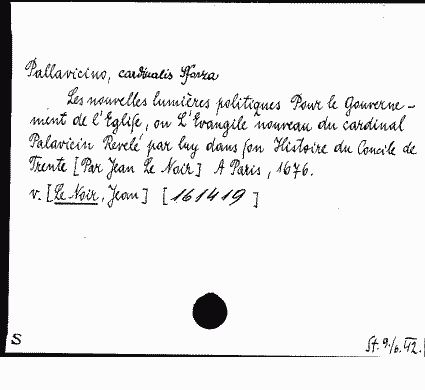 Pallavicino, cardinalis Sforza
Les nouvelles lumières politiques Pour le Gouverne-
ment de l'Eglise, ou L'Evangile nouveau du cardinal
Palavicin Revelé par luy dans son Histoire du Concile de
Trente [Par Jean Le Noir] A Paris, 1676.
v. [Le Noir, Jean] [161419]
S
St. 9./6. VI 42.